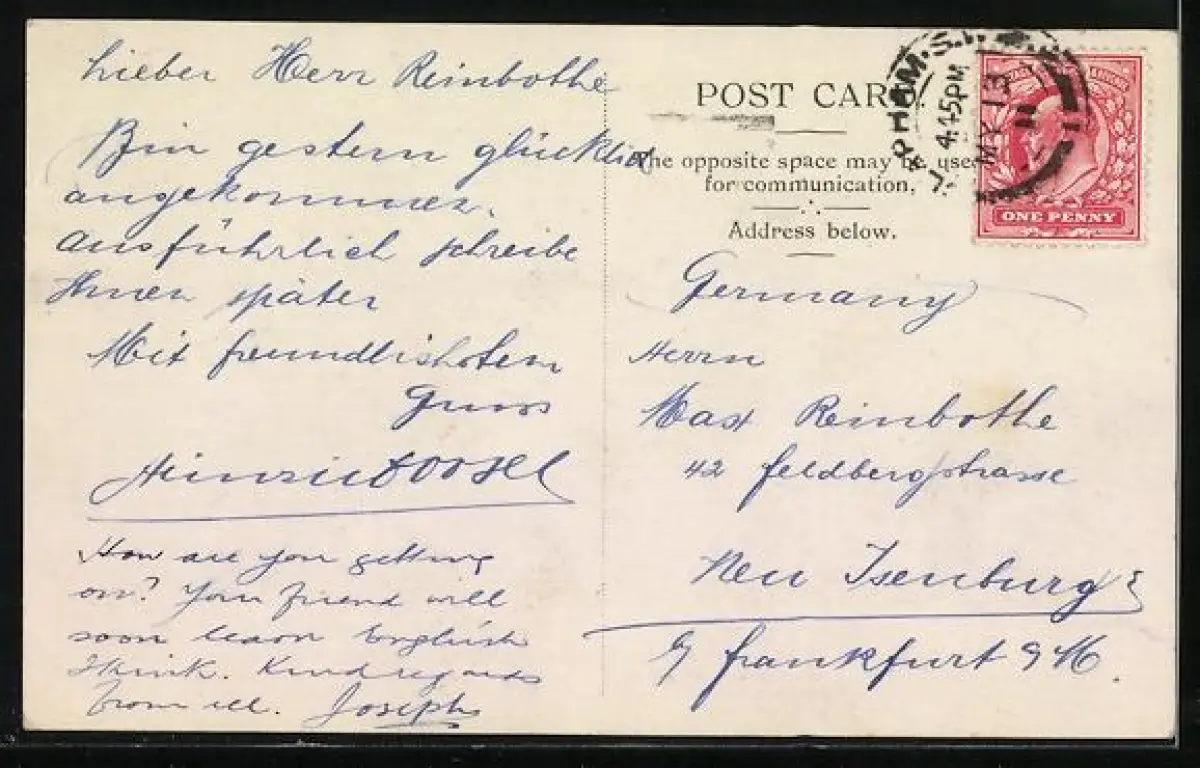 Lieber Herr Reinbothe
Bin gestern glücklich
angekommen.
Ausführlich schreibe
Ihnen später
Mit freundlishstem
Gruss
How are you getting
on? Your friend will
soon learn English
I think. Kind regards
from all. Joseph
POST CARD.
The opposite space may be used
for communication,
Address below.
4.45PM
MY 13
11
ONE PENNY
Germany
Herrn
Max Reinbothe
42 Feldbergstrasse
Neu Isenburg
Frankfurt a/M.